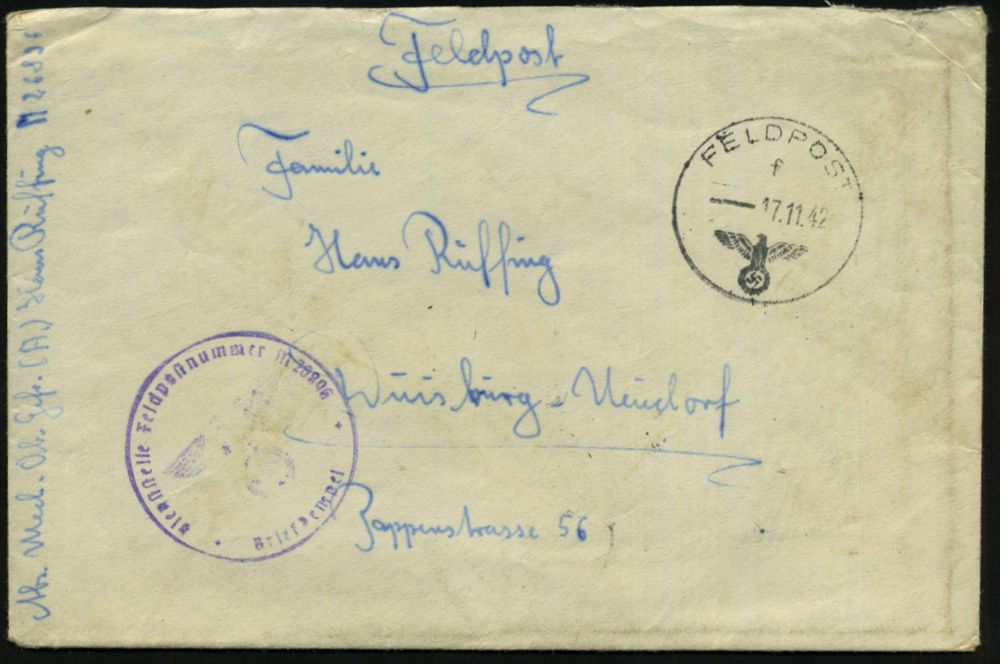 Feldpost
Familie
Hans Rüffing
Duisburg-Neudorf
Zappenstrasse 56
FELDPOST
f
17.11.42
Dienststelle Feldpostnummer M 26896
Briefstempel
Abs. Mech. Ob. Gfr. (A.) Hans Rüffing M 26896